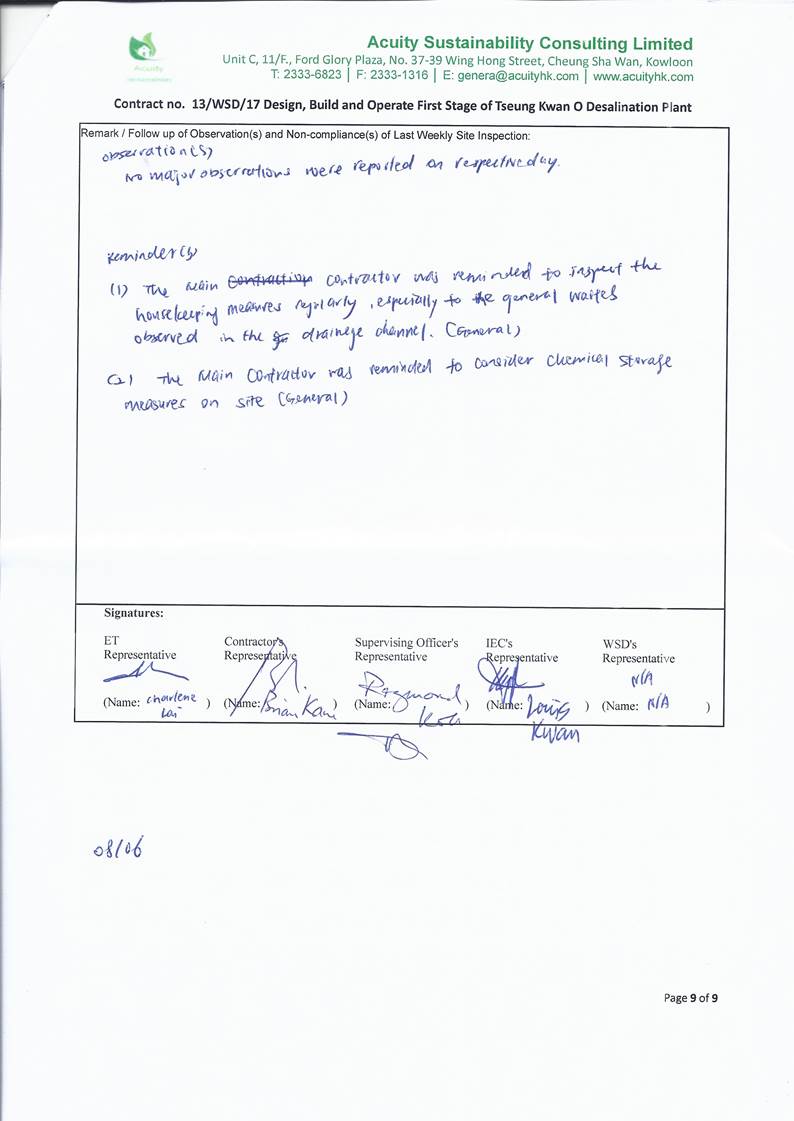 Acuity
Acuity Sustainability Consulting Limited
Unit C, 11/F., Ford Glory Plaza, No. 37-39 Wing Hong Street, Cheung Sha Wan, Kowloon
T: 2333-6823 | F: 2333-1316 | E: genera@acuityhk.com | www.acuityhk.com
Contract no. 13/WSD/17 Design, Build and Operate First Stage of Tseung Kwan O Desalination Plant
Remark / Follow up of Observation(s) and Non-compliance(s) of Last Weekly Site Inspection:
Observation(s)
No major observations were reported on respective day.
Reminder(s)
(1) The Main contractor was reminded to inspect the
housekeeping measures regularly, especially to the general wastes
observed in the drainage channel. (General)
(2) The Main Contractor was reminded to consider Chemical storage
measures on site (General)
Signatures:
ET Representative
Contractor's Representative
Supervising Officer's Representative
IEC's Representative
WSD's Representative
N/A
(Name: Charlene Lai )
(Name: Brian Kam )
(Name: Raymond )
(Name: Louis Kwan )
(Name: N/A )
08/06
Page 9 of 9